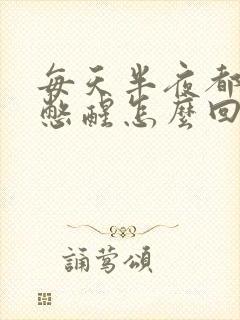 每天半夜都
憋醒怎麼回
誦鶯頌